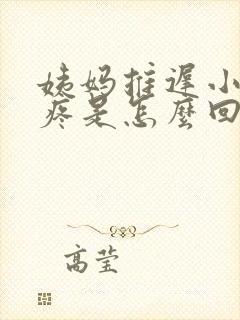 姨妈推遲小
疼是怎麼回
高莹